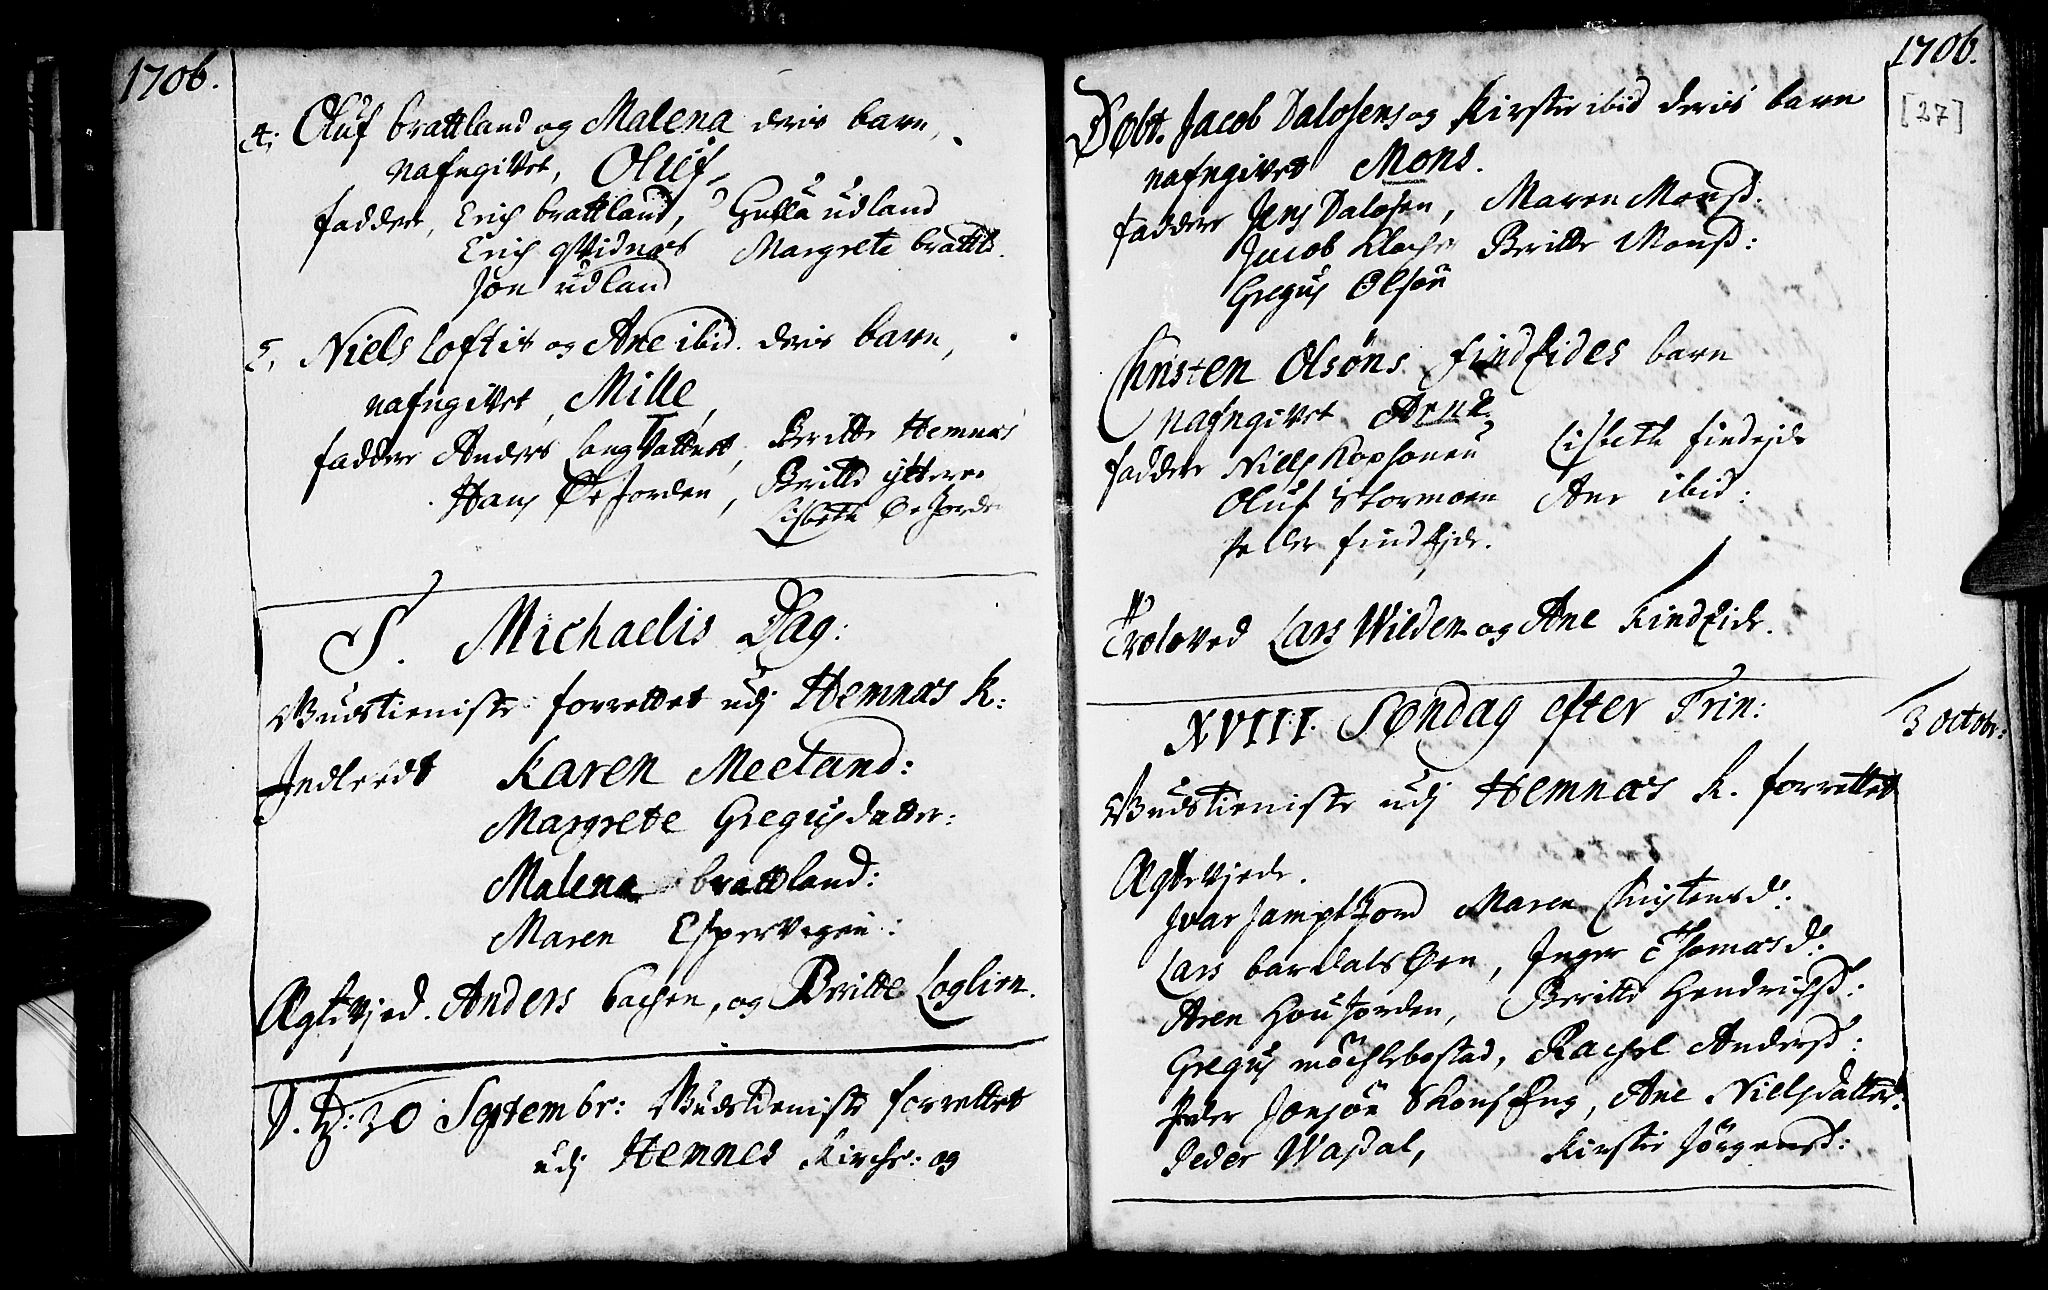 1706.
4. Oluf brattland og Malena deris barn,
Nafngivet, Oluf,
faddere, Erich brattland, Gulla udland
Erich Widnæs Margrete brattl.
Jon udland
5. Niels Loftis og Ane ibid. deris barn,
nafngivet, Mille,
faddere Anders LangVattnet, Beritte Hemnæs
Hans ØeJorden, Beritte ÿttere
Lisbeth ØeJorde
S. Michaelis Dag:
Gudstieniste forrettet udj Hemnæs K:
Indleedt Karen Meeland:
Margrete Gregusdatter:
Malena brattland:
Maren Espervegen:
Ægteviied. Anders bachen, og Beritte Loglien.
D. 30 Septembr: Gudstieniste forrettet
udj Hemnes Kirche: og
1706.
[27]
Døbt. Jacob Dalosens og Kirstie ibid deris barn
nafngivet Mons.
faddere Jens Dalosen, Maren Monsd.
Jacob Beritte Monsd:
Gregus Olsøn
Christen Olsøns findEides barn
Nafngivet
faddere Niels Lisbeth findeide
Oluf Stormoen Ane ibid:
Peder findEide.
Troloved Lars Wilden og Ane FindEide.
XVIII. Søndag efter Trin:
3 octobr:
Gudstieniste udj Hemnæs K. forrettet
Ægteviede.
Ivar JamptJord Maren Christensd:
Lars bardalsØen, Inger Thomæsd:
Aren HouJorden, Beritte Hendrichsd:
Gregus möchlebostad, Rachel Andersd:
Peder Jonsøn SkonsEng, Ane Nielsdatter.
Peder Wasdal, Kirstie Jörgensd: